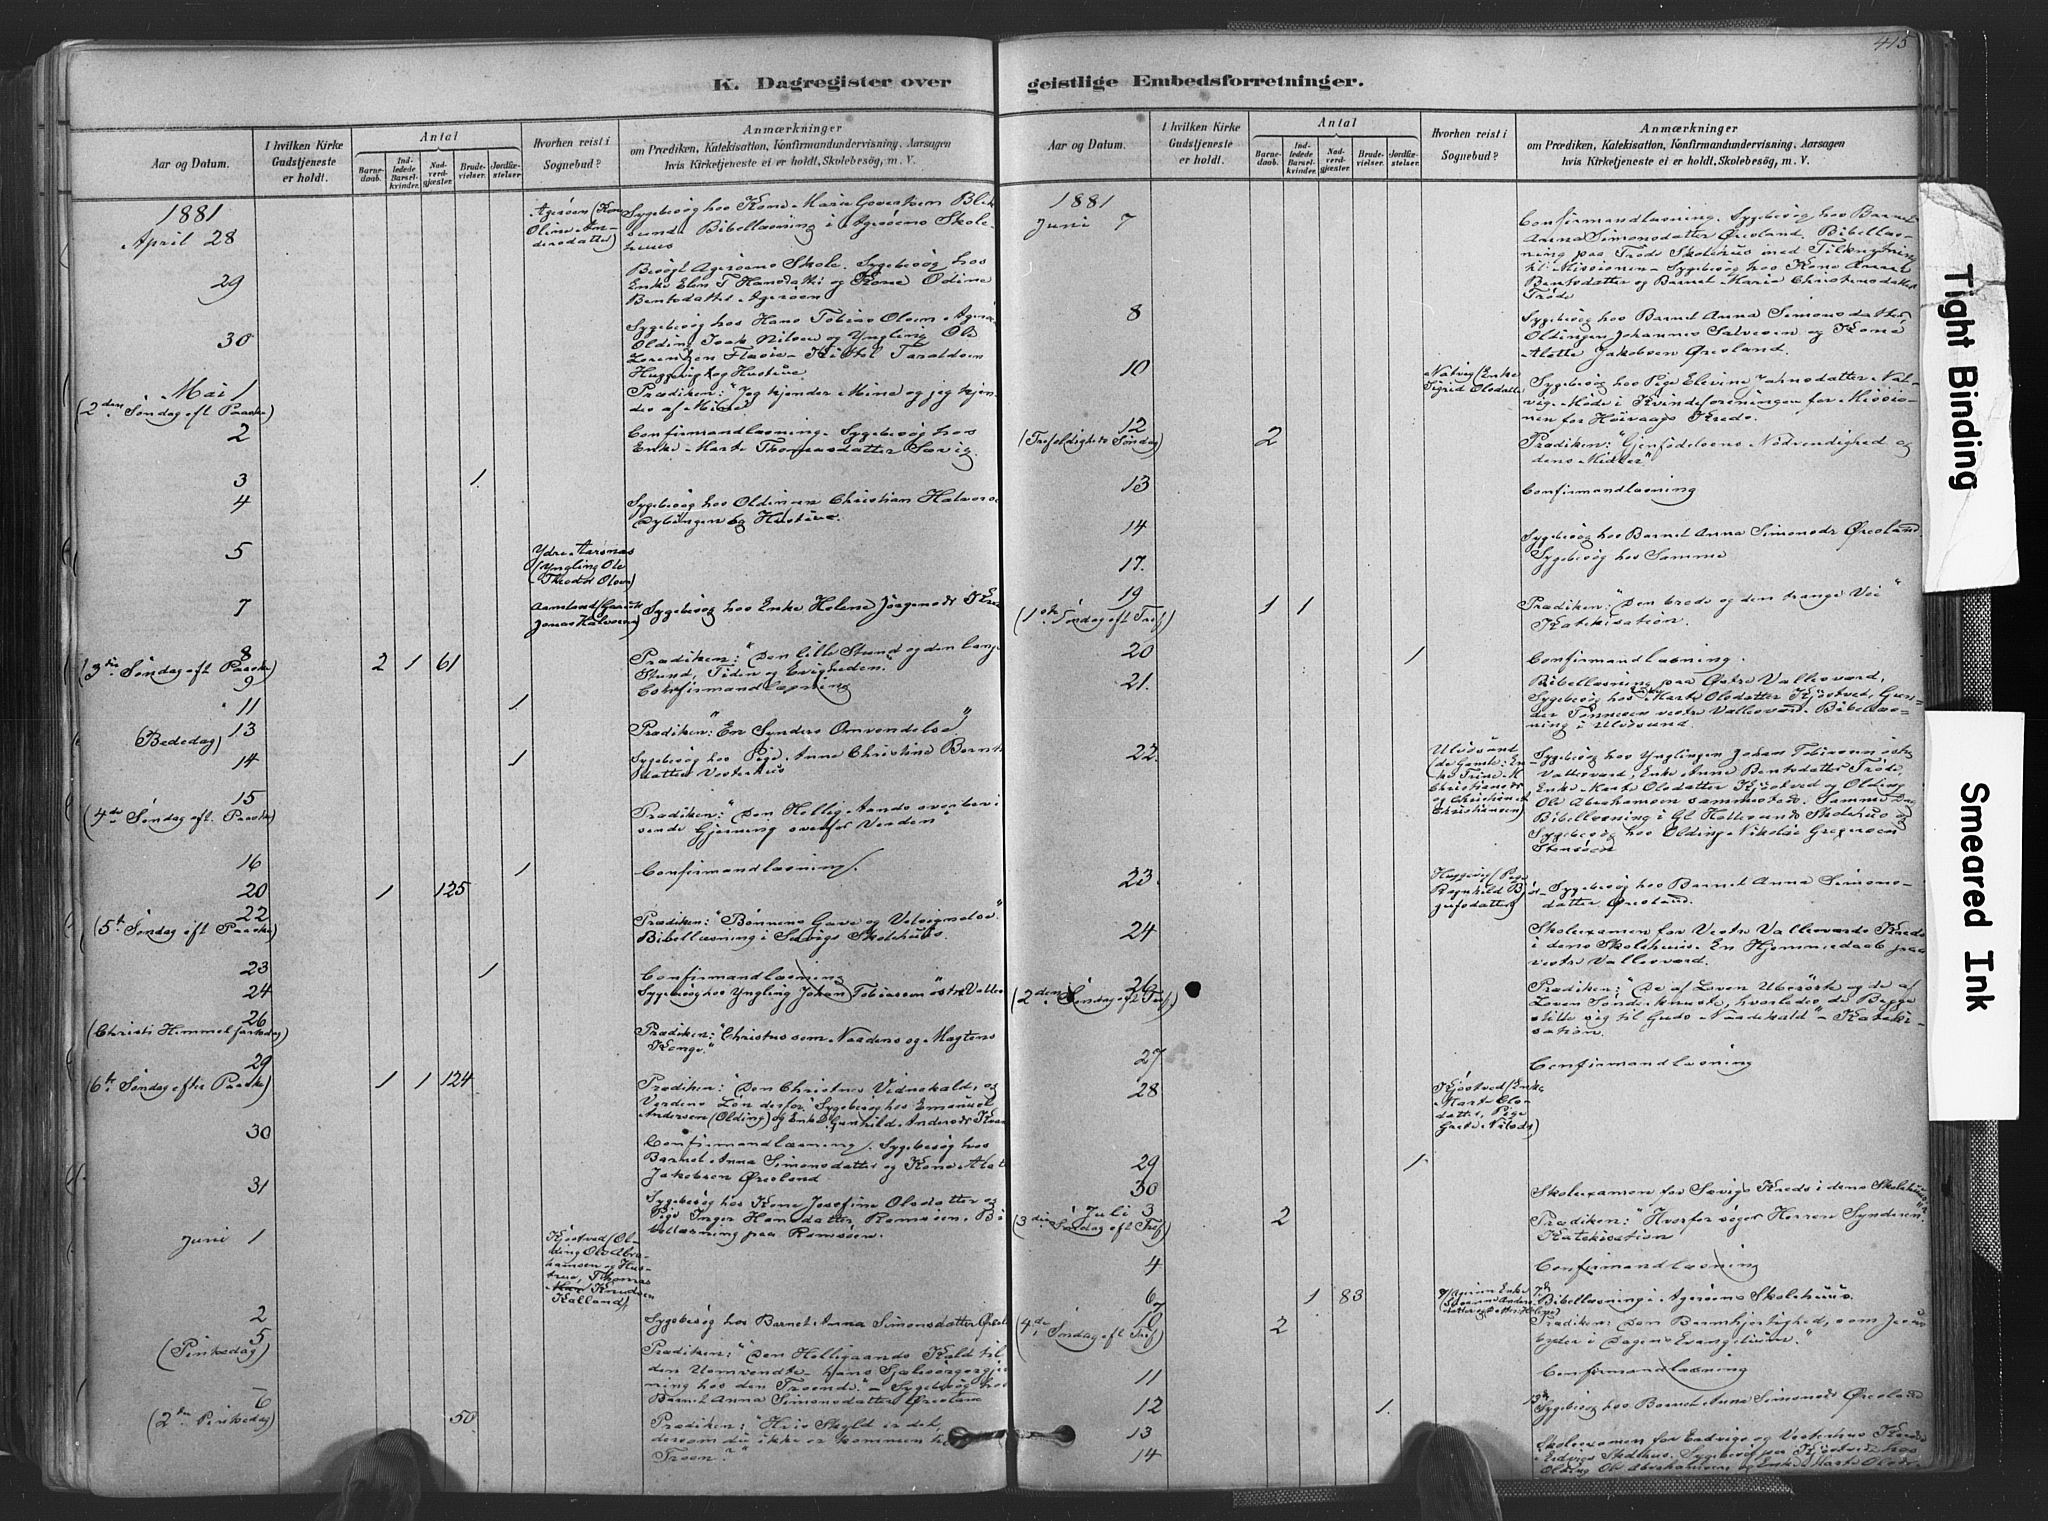 K. Dagregister over
Aar og Datum.
I hvilken Kirke Gudstjeneste er holdt.
Antal
Barnedaab.
Indledede Barselkvinder.
Nadverdgjæster.
Brudevielser.
Jordfæstelser.
Hvorhen reist i Sognebud?
Anmærkninger
om Prædiken, Katekisation, Konfirmandundervisning, Aarsagen
hvis Kirketjeneste ei er holdt, Skolebesøg, m. V.
1881
April 28
Agerøen (Kone
Oline An-
dersdatter)
Sygebesøg hos Kone Marie Govertsen Blik-
sund. Bibellæsning i Agerøens Skole-
huus
29
Besøgt Agerøens Skole. Sygebesøg hos
Enke Elen T Hansdatter og Kone Odine
Bentsdatter Agerøen
30
Sygebesøg hos Hans Tobias Olsen Agerø
Olding Isak Nilsen og Yngling Ole
Lorentzen
Huggevig og Hustrue
Mai 1
(2den Søndag eft Paaske)
Prædiken: "Jeg kjender Mine og jeg kjen-
des af Mine"
2
Confirmandlæsning. Sygebesøg hos
Enke Marte Thomasdatter Sævig.
3
1
4
Sygebesøg hos Oldingen Christian Halvorsen
Dybingen og Hustrue.
5
Ydre Aarsnæs
(Yngling Ole
Theodor Olsen)
7
Jonas Halvorsen)
Sygebesøg hos Enke Helene Jørgensdr
8
(3die Søndag eft Paaske)
2 1 61
Prædiken: "Den lille Stund og den lange
Stund, Tiden og Evigheden."
9
Confirmandlæsning
11
1
13
(Bededag)
Prædiken: "En Synders Omvendelse"
14
1
Sygebesøg hos Pige Anne Christine Bernts
datter Vesterhus
15
(4de Søndag eft. Paaske)
Prædiken: "Den Hellig Aands overbevi-
sende Gjerning overfor Verden"
16
1
Confirmandlæsning.
20
1 125
22
(5te Søndag eft Paaske)
Prædiken: "Bønnens Gave og Velsignelse"
Bibellæsning i Sævigs Skolehuus.
23
1
Confirmandlæsning
24
Sygebesøg hos Yngling Johan Tobiassen østre Valles
26
(Christi Himmelfartsdag)
Prædiken: "Christus som Naadens og Magtens
Konge."
29
(6te Søndag efter Paaske)
1 1 124
Prædiken: "Den Christnes Vidnekald, og
Verdens Løn derfor." Sygebesøg hos Emanuel
Andersen (Olding) og Enke Gunhild Andersdr
30
Confirmandlæsning. Sygebesøg hos
Barnet Anna Simonsdatter og Kone
Jakobsen Øresland
31
Sygebesøg hos Kone Josefine Olsdatter og
Pige Inger Hansdatter, Ramsøen. Bi-
bellæsning paa Ramsøen.
Juni 1
Kjøstved (Ol-
ding Ole Abra-
hamsen og Hus-
true, Thomas
Knudsen
Kalland)
2
Sygebesøg hos Barnet Anna Simonsdatter Øresl
5
(Pinsedag)
Prædiken: "Den Helligaands Kald til
den Uomvendte - hans Sjælesørgergjer-
ning hos den Troende." - Sygebesøg hos
Barnet Anna Simonsdatter Øresland
6
(2den Pinsedag)
50
Prædiken: "Hvis Skyld er det,
dersom du ikke er kommen til
Troen?"
geistlige Embedsforretninger.
415
Aar og Datum.
I hvilken Kirke Gudstjeneste er holdt.
Antal
Barnedaab.
Indledede Barselkvinder.
Nadverdgjæster.
Brudevielser.
Jordfæstelser.
Hvorhen reist i Sognebud?
Anmærkninger
om Prædiken, Katekisation, Konfirmandundervisning, Aarsagen
hvis Kirketjeneste ei er holdt, Skolebesøg, m. V.
1881
Juni 7
Confirmandlæsning. Sygebesøg hos Barnet
Anna Simonsdatter Øresland. Bibellæs-
ning paa Trøds Skolehus med Tilknytning
til Missionen. Sygebesøg hos Kone Anne
Bentsdatter og Barnet Marie Christensdatter
Trøde
8
Sygebesøg hos Barnet Anna Simonsdatter
Oldingen Johannes Salvesen og Kone
Jakobsen Øresland.
10
Natvig (Enke
Sigrid Olsdatter
Sygebesøg hos Pige Elevine Jahnsdatter Nat-
vig. Møde i Kvindeforeningen for Missio-
nen for Høivaags Kreds.
12
(Trefoldigheds Søndag)
2
Prædiken: "Gjenfødelsens Nødvendighed og
dens Midler"
13
Confirmandlæsning
14
Sygebesøg hos Barnet Anna Simonsdr Øresland.
17.
Sygebesøg hos Samme
19
(1ste Søndag eft Tref)
1 1
Prædiken: "Den brede og den trange Vei"
Katekisation.
20
1
Confirmandlæsning.
21.
Bibellæsning paa Østre Vallesværd,
Sygebesøg hos Enke Marte Olsdatter Kjøstved, Gun-
der Tønnesen vestre Vallesværd. Bibellæs-
ning i Ulvøsund
22.
Ulvøsund
(de Gamle: En-
ke Trine
Christiansdr
og Christian
Christensen)
Sygebesøg hos Ynglingen Johan Tobiassen østre
Vallesværd, Enke Anne Bentsdatter Trøde,
Enke Marte Olsdatter Kjøstved og Olding
Ole Abrahamsen sammesteds. Samme Dag
Bibellæsning i Gl. Hellesunds Skolehuus og
Sygebesøg hos Olding Nikolai Gregersen
Stensøen
23.
Huggevig (Pige
Ragnhild
Sygebesøg hos Barnet Anna Simons-
datter Øresland.
24
Skolexamen for Vestre Vallesværds Kreds
i dens Skolehuus. En Hjemmedaab paa
vestre Vallesværd.
26
(2den Søndag eft Tref)
Prædiken: "De af Loven Uberørte og de af
Loven Sønderknuste, hvorledes de Begge
stille sig til Guds Naadekald" - Kateki-
sation.
27
Confirmandlæsning
28
Kjøstved (Enke
Mart Ols-
datter, Pige
Grete Nilsdr)
29
1
30
Skolexamen for Sævigs Kreds i dens Skolehuus
Juli 3
(3die Søndag eft Tref)
2
Prædiken: "Hvorfor søger Herren Synderen"
Katekisation
4
Confirmandlæsning
6
1 83
7
Bibellæsning i Agerøens Skolehuus.
10
(4de Søndag eft Tref)
2
Prædiken: Den Barmhjertighed, som Jesus
byder i Dagens Evangelium."
11
Confirmandlæsning
12
1.
13
Sygebesøg hos Barnet Anna Simonsdr Øresland
14
Skolexamen for Eidvigs og Vesterhus Kreds
Sygebesøg paa Kjøstved hos
Olding Ole Abrahamsen og Enke Marte Olsdr
Tight Binding
Smeared Ink